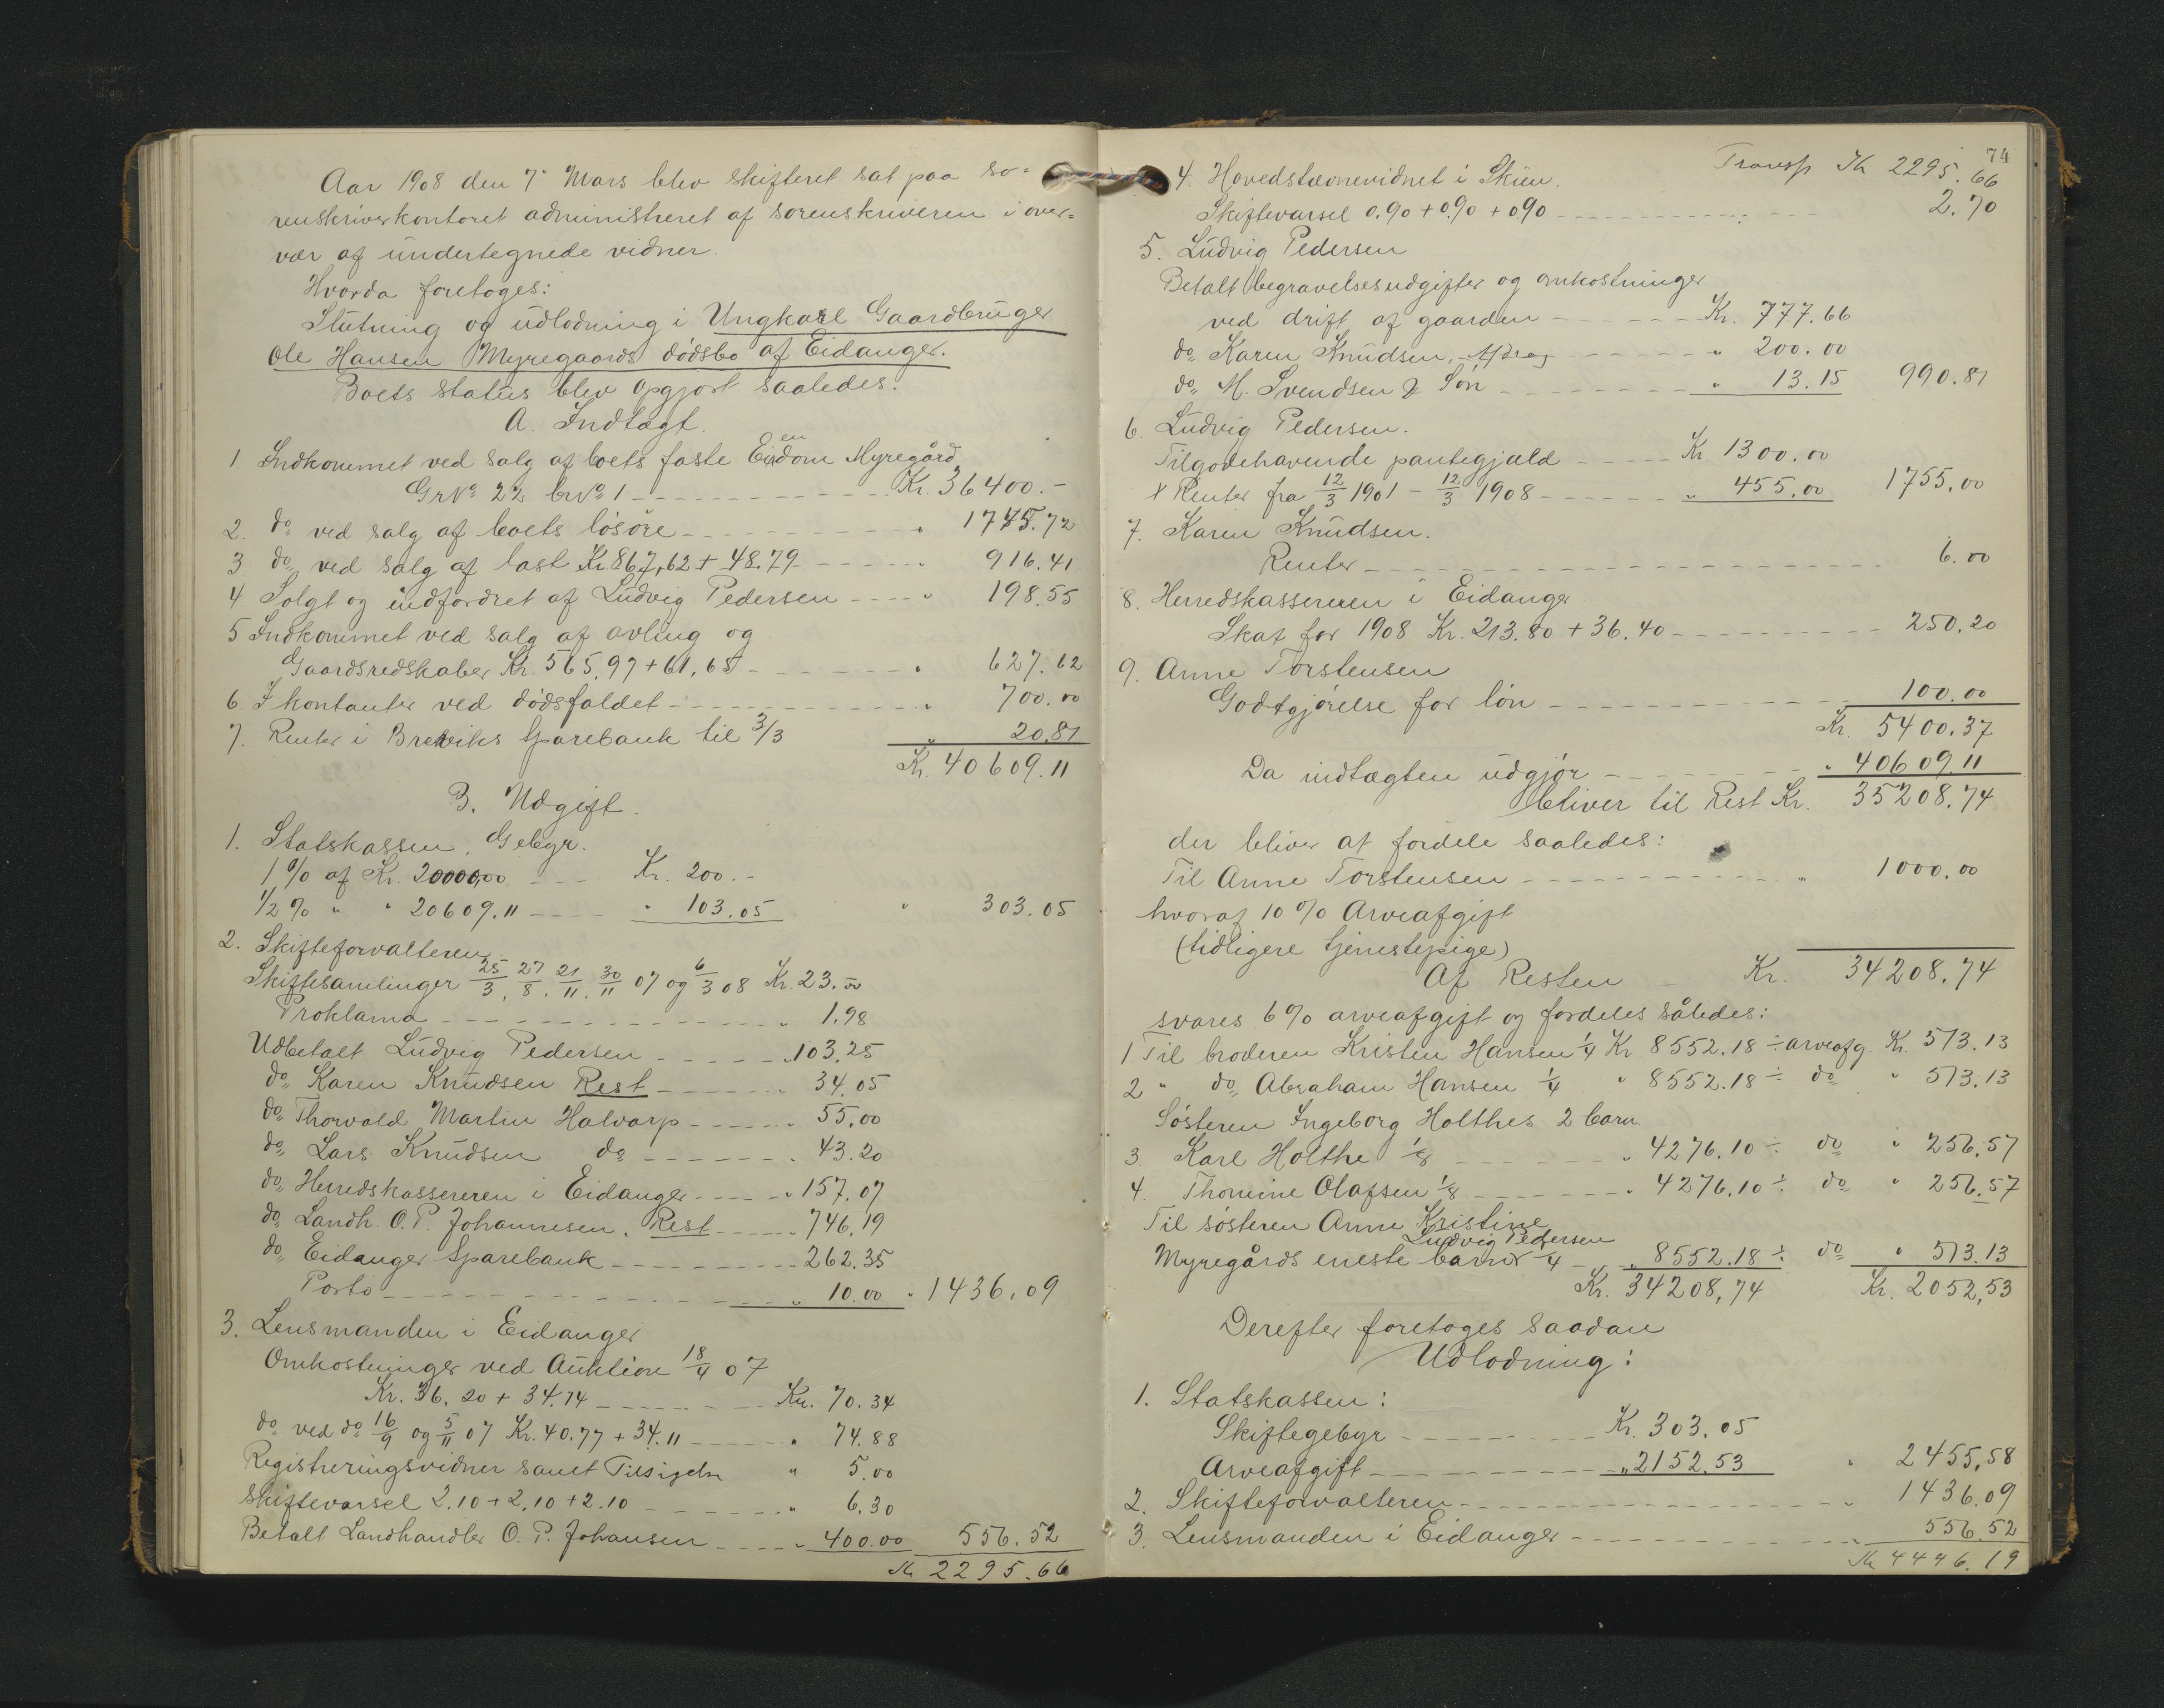 Aar 1908 den 7de Mars blev skifteret sat paa so-
renskriverkontoret administreret af sorenskriveren i over-
vær af undertegnede vidner.
Hvorda foretoges:
Slutning og udlodning i Ungkarl Gaardbruger
Ole Hansen Myregaards dödsbo af Eidanger.
Boets status blev opgjort saaledes:
A. Indtægt.
1 Indkommet ved salg af boets faste Eiendom Myregård
Gr№ 22 br№ 1 Kr. 36400.-
2. do ved salg af boets lösöre " 1745.72
3 do ved salg af last Kr 867,62 + 48.79 " 916.41
4 Solgt og indfordret af Ludvig Pedersen " 198.55
5 Indkommet ved salg af avling og
Gaardsredskaber Kr. 565,97 + 61,65 " 627.62
6. I kontanter ved dödsfaldet " 700.00
7. Renter i Breviks Sparebank til 3/3 " 20.81
Kr. 40609.11
B. Udgift.
1. Statskassen, Gebyr.
1 % af Kr. 20000,00 Kr. 200.-
1/2 % " " 20609.11 " 103.05 " 303.05
2. Skifteforvalteren
Skiftesamlinger 25/3, 27/8, 21/11, 30/11 07 og 6/3 08 Kr. 23.00
Proklama " 1.98
Udbetalt Ludvig Pedersen " 103.25
do Karen Knudsen Rest " 34.05
do Thorvald Martin Halvarp " 55,00
do Lars Knudsen do " 43.20
do Herredskassereren i Eidanger " 157.07
do Landh. O. P. Johannesen. Rest " 746.19
do Eidanger Sparebank 262.35
Porto " 10.00 " 1436,09
3. Lensmanden i Eidanger
Omkostninger ved Auktion 18/4 07
Kr. 36.20 + 34.14 Kr. 70.34
do ved do 16/9 og 5/11 07 Kr. 40.77 + 34.11 " 74.88
Registreringsvidner samt Tilsigeln " 5.00
Skiftevarsel 2.10 + 2.10 + 2.10 " 6.30
Betalt Landhandler O. P. Johansen " 400.00 556.52
Kr 2295.66
74
Transp Kr 2295.66
4. Hovedstævnevidnet i Skien.
Skiftevarsel 0.90 + 0.90 + 0.90 2.70
5. Ludvig Pedersen
Betalt begravelsesudgifter og omkostninger
ved drift af gaarden Kr. 777.66
do Karen Knudsen, Afdrag " 200.00
do M. Svendsen & Sön " 13.15 990.81
6. Ludvig Pedersen.
Tilgodehavende pantegjæld Kr. 1300.00
+ Renter fra 12/3 1901 - 12/3 1908 " 455.00 1755.00
7. Karen Knudsen.
Renter 6.00
8. Herredskassereren i Eidanger
Skat for 1908 Kr. 213.80 + 36.40 250.20
9. Anne Torstensen
Godtgjörelse for lön 100.00
Kr. 5400.37
Da indtægten udgjör " 40609.11
bliver til Rest Kr. 35208.74
der bliver at fordele saaledes:
Til Anne Torstensen " 1000.00
hvoraf 10 % Arveafgift
(tidligere tjenestepige)
Af Resten Kr. 34208.74
svares 6 % arveafgift og fordeles således:
1 Til broderen Kristen Hansen 1/4 Kr 8552.18 ÷ arveafg. Kr. 513.13
2 " do Abraham Hansen 1/4 " 8552.18 ÷ do " 513.13
Sösteren Ingeborg Holthes 2 barn
3. Karl Holthe 1/8 " 4276.10 ÷ do " 256,57
4. Thomine Olafsen 1/8 " 4276.10 ÷ do " 256.57
Til sösteren Anne Kristine
Ludvig Pedersen
Myregårds eneste barn 1/4 " 8552.18 ÷ do " 513.13
Kr. 34208,74 Kr. 2052,53
Derefter foretoges saadan
Udlodning:
1. Statskassen:
Skiftegebyr Kr. 303.05
Arveafgift " 2152.53 " 2455,58
2. Skifteforvalteren " 1436.09
3. Lensmanden i Eidanger " 556.52
Kr 4446.19